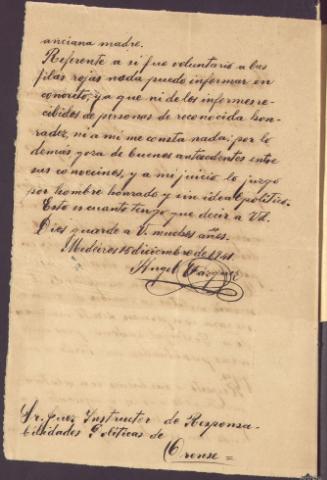 anciana madre.
Referente a si fue voluntario a las
filas rojas nada puedo informar en
concreto, ya que ni de los informes re-
cibidos de personas de reconocida hon-
radez, ni a mi me consta nada; por lo
demás goza de buenos antecedentes entre
sus convecinos, y a mi juicio lo juzgo
por hombre honrado y sin ideal político.
Esto es cuanto tengo que decir a Vd.
Dios guarde a V. muchos años.
Medeiros 15 diciembre de 1941.
Angel Vázquez
Sr. Juez Instructor de Responsa-
bilidades Políticas de
Orense =